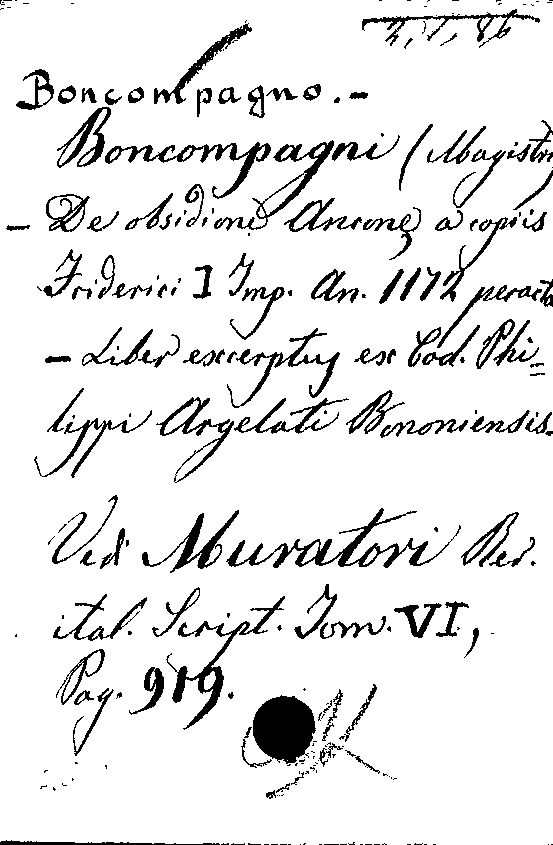 2, 1, 86
Boncompagno. –
Boncompagni (Magistri
– De obsidione Anconę a copiis
Friderici I Imp. An. 1172 peracta
– Liber excerptus ex Cod. Phi=
lippi Argelati Bononiensis.
Vedi Muratori Rer.
ital. Script. Tom. VI,
Pag. 919.